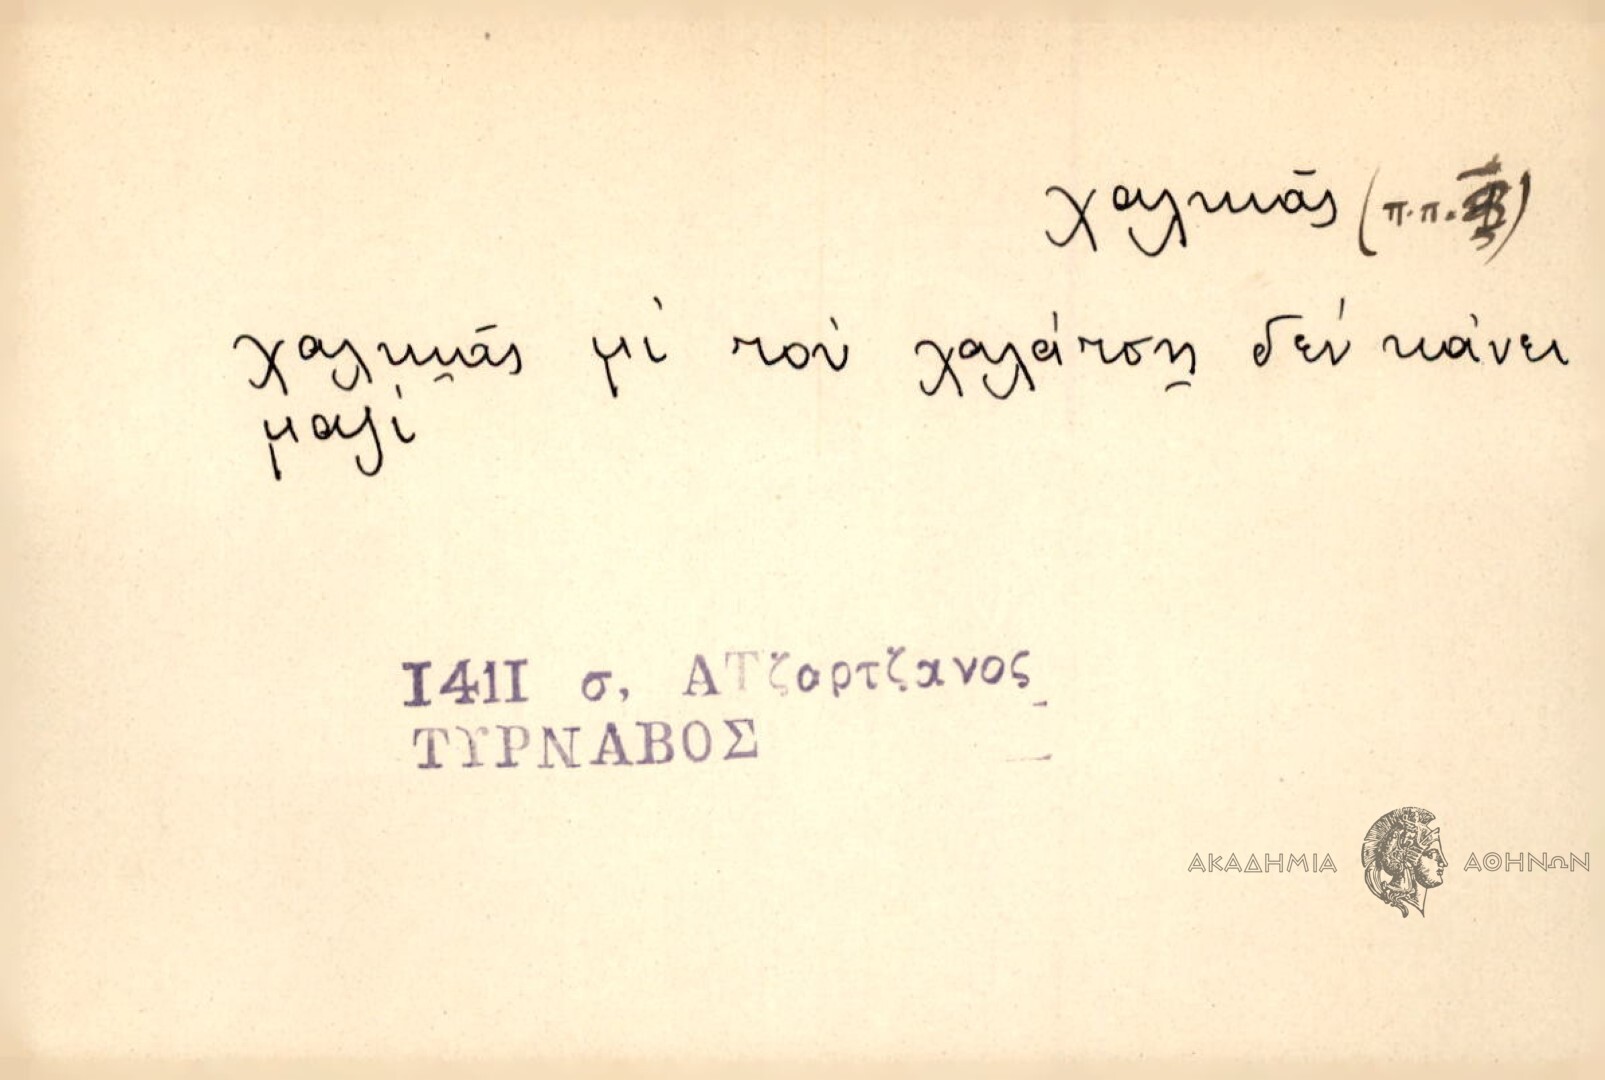 χαλκιᾶς (π.π.
χαλκιᾶς μὶ τοὺ χαλάτση δὲν κάνει
μαζὶ
1411 σ, ΑΤζαρτζανος
ΤΥΡΝΑΒΟΣ
ΑΚΑΔΗΜΙΑ ΑΘΗΝΩΝ